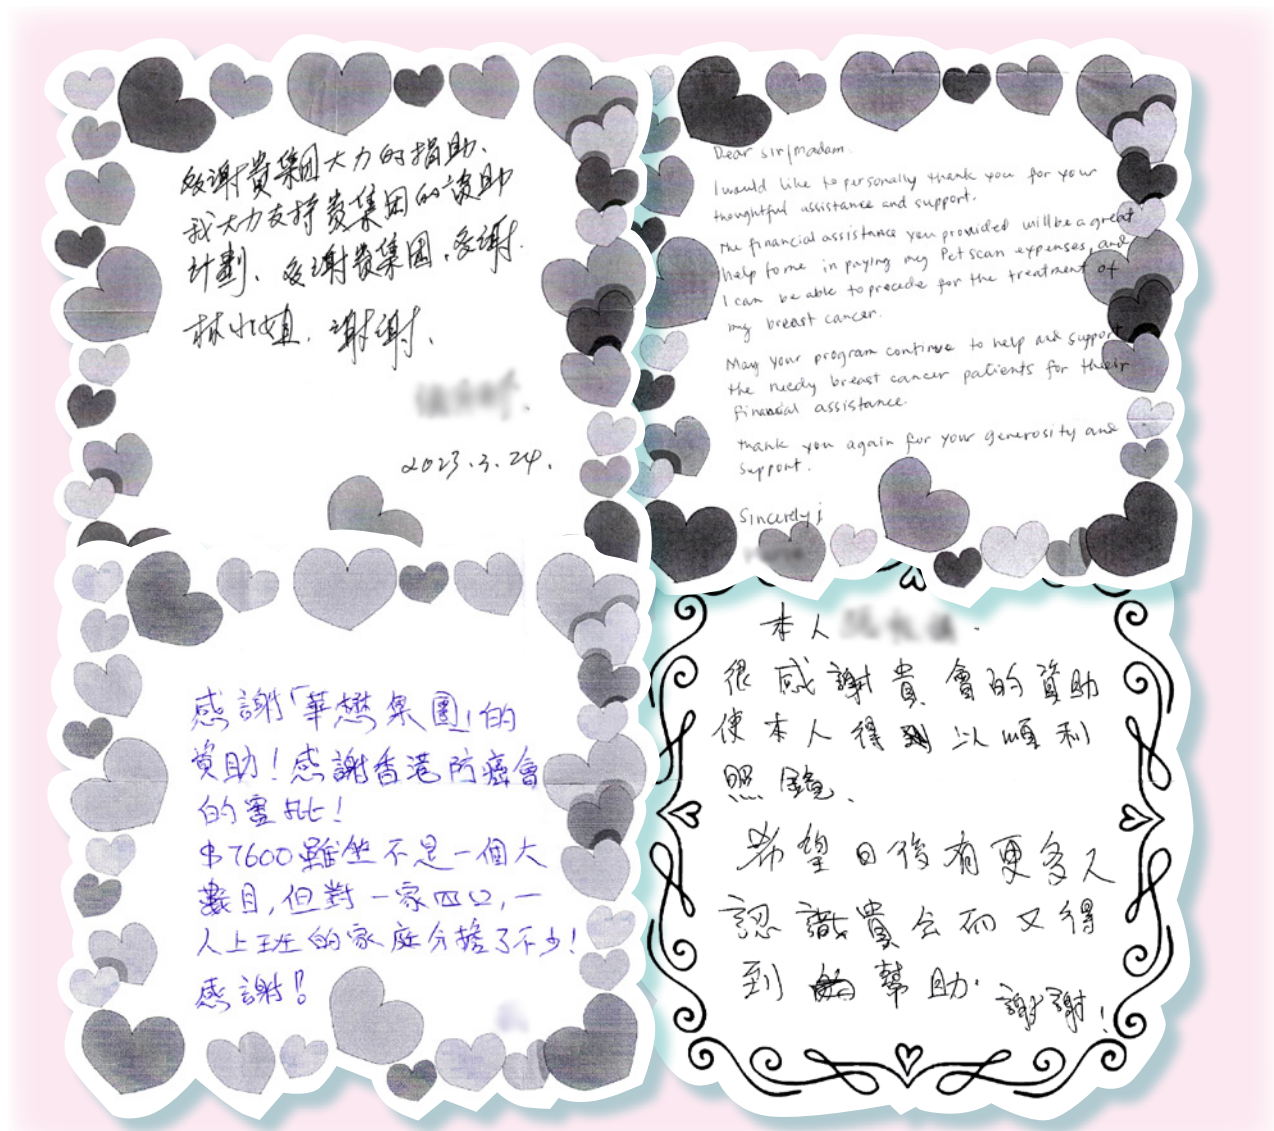 多謝貴集團大力的捐助、
我大力支持貴集團的資助
計劃、多謝貴集團,多謝.
林小姐、謝謝、
2023.3.24.
Dear Sir/Madam.
I would like to personally thank you for your
thoughtful assistance and support.
The financial assistance you provided will be a great
help for me in paying my Petscan expenses, and
I can be able to precede for the treatment of
my breast cancer.
May your program continue to help and support
the needy breast cancer patients for their
financial assistance.
Thank you again for your generosity and
support.
Sincerely,
感謝「華懋集團」的
資助!感謝香港防癌會
的審批!
$7600雖然不是一個大
數目,但對一家四口,一
人上班的家庭分擔了不少!
感謝!
本人
很感謝貴會的資助
使本人得以順利
照鏡、
希望日後有更多人
認識貴会而又得
到幫助. 謝謝!